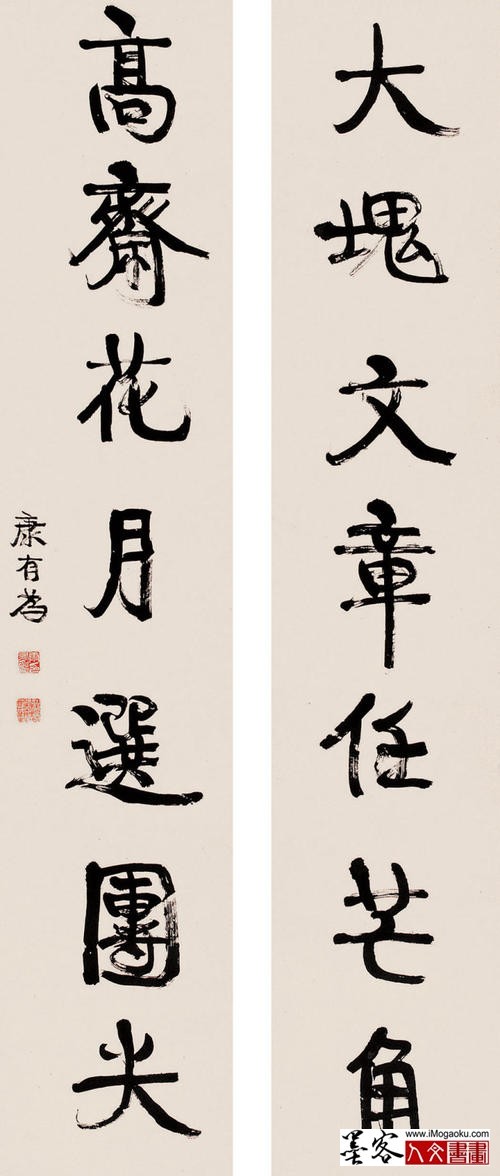 大塊文章任芒角
高齋花月選團尖
康有為
墨客
www.iMogaoku.com
人文書畫